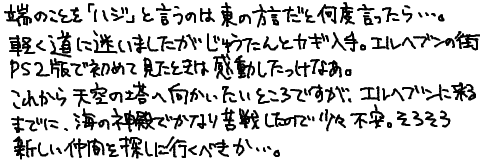 端のことを「ハジ」と言うのは東の方言だと何度言ったら…。
軽く道に迷いましたがじゅうたんとカギ入手。エルヘブンの街
PS2版で初めて見たときは感動したっけなあ。
これから天空の塔へ向かいたいところですが、エルヘブンに来る
までに、海の神殿でかなり苦戦したので少々不安。そろそろ
新しい仲間を探しに行くべきか…。